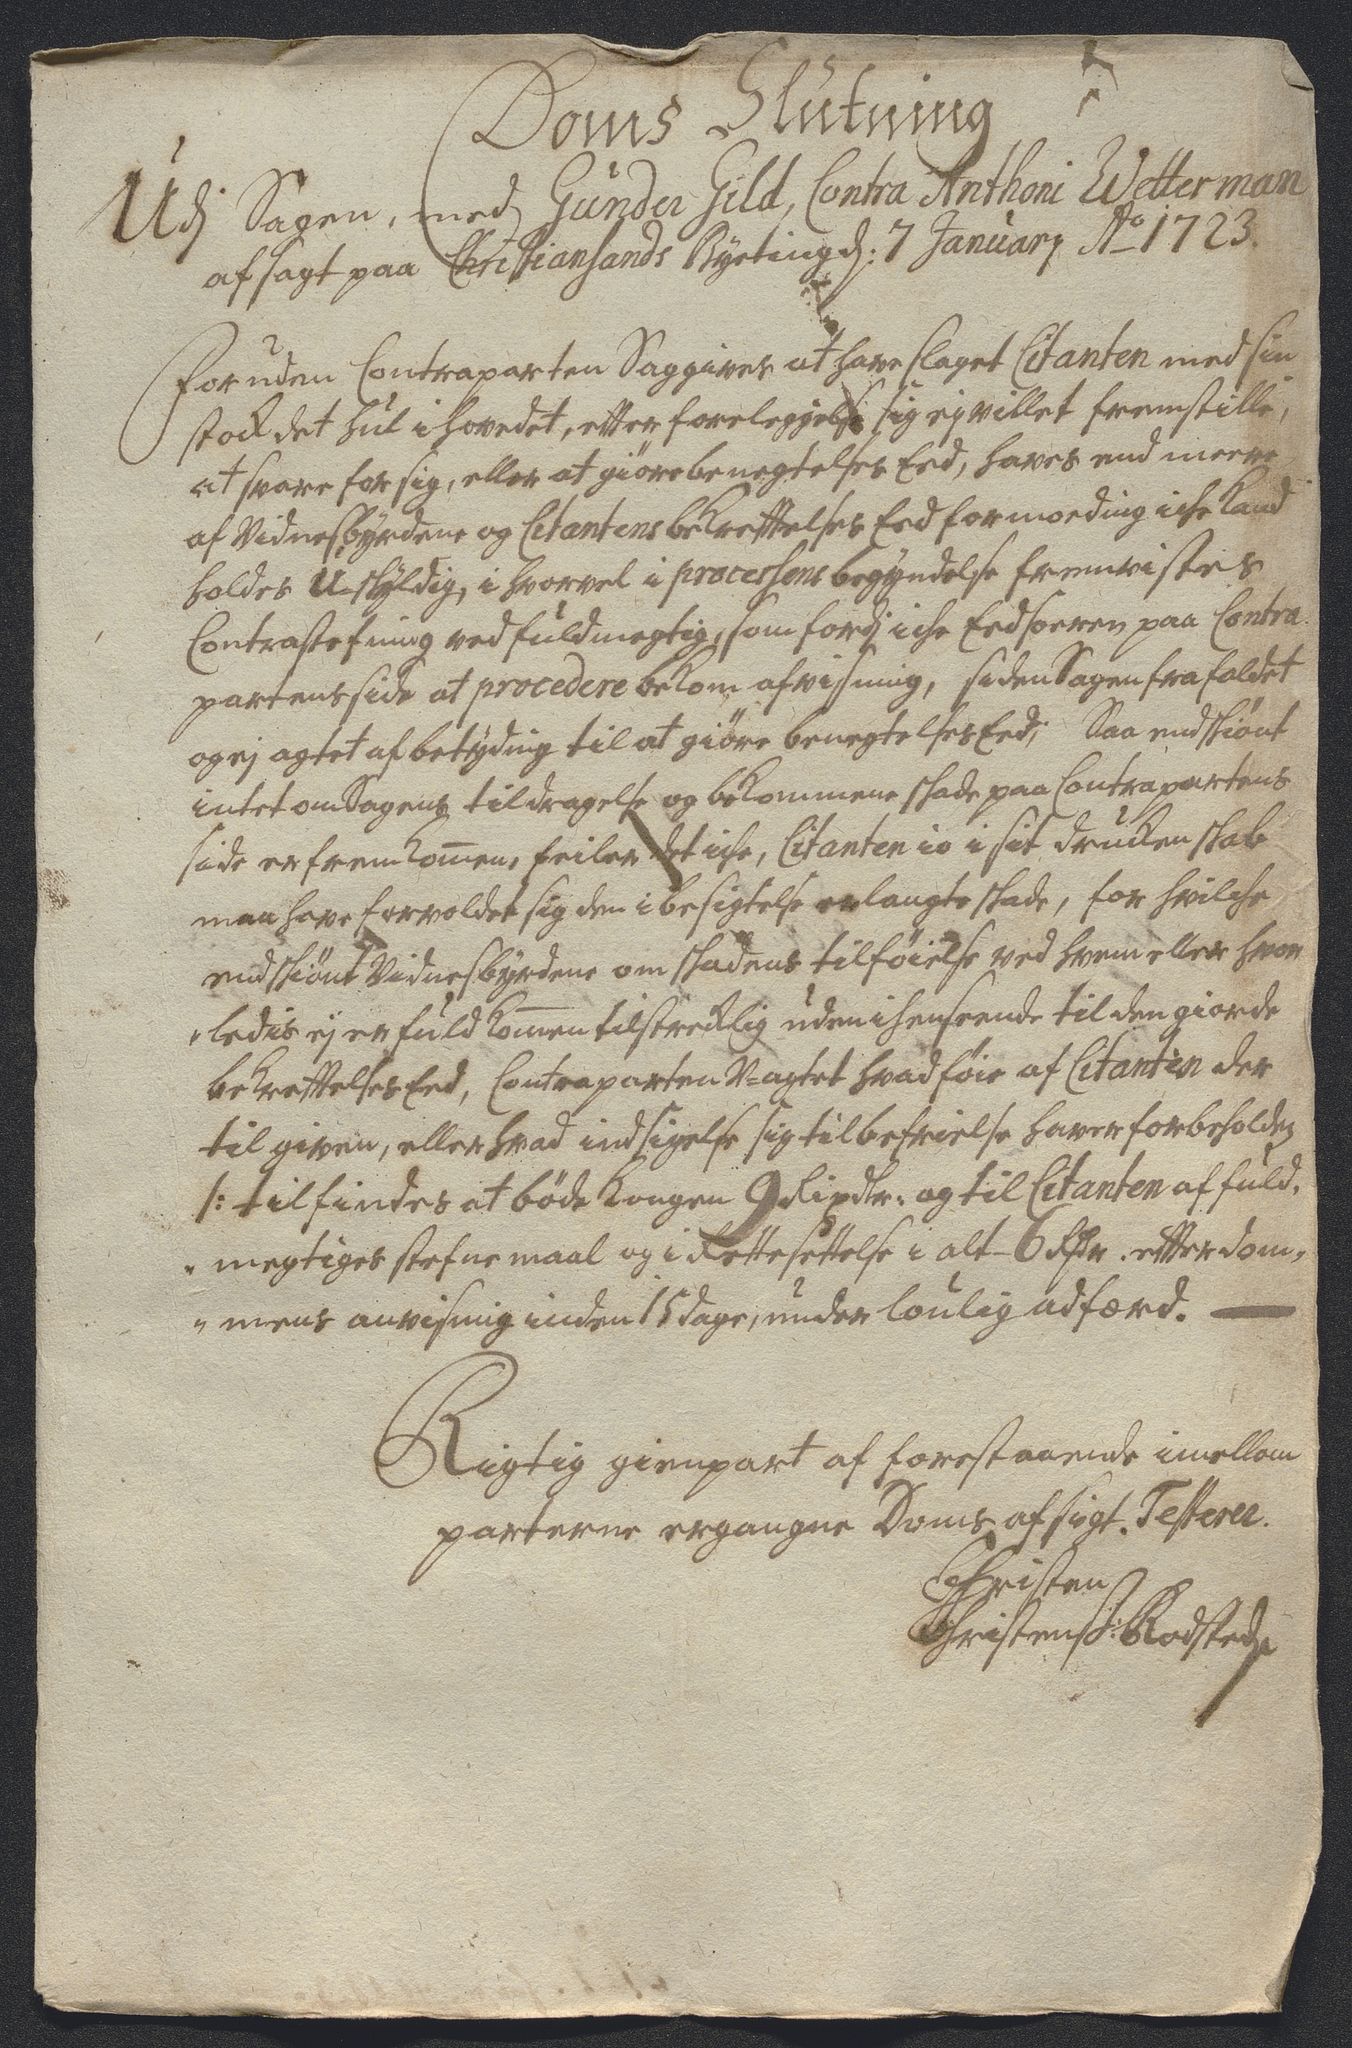 Doms Slutning
Udj Sagen, med Gunder Gild, Contra Anthoni Wetterman
afsagt paa Christiansands Byeting d: 7 January Ao 1723.
Foruden Contraparten Saggives at have slaget Citanten med sin
stock det hul i hovedet, efter foreleggelse sig ej villet fremstille,
at svare for sig, eller at giöre benegtelses Eed, haves end meere
af Vidnesbyrdene og Citantens bekreftelses Eed formoeding iche kand
holdes U-skyldig, i hvorvel i processens begyndelse fremvistes
Contrastefning ved fuldmegtig, som fordj iche Eedsoeren paa Contra
partens side at procedere bekom afvisning, siden Sagen frafaldet
og ej agtet af betyding til at giöre benegtelses Eed; Saa endskiönt
intet om Sagens tildragelse og bekommene skade paa Contrapartens
side er fremkommen, feiler det iche, Citanten io i sit druckenskab
maa have forvoldet sig den i besigtelse erlangte skade, for hvilche
endskiönt Vidnesbyrdene om skadens tilföielse ved hvem eller hvor
"ledis ej er fuldkommen tilstrecklig uden i henseende til den giorde
bekreftelses Eed, Contraparten U-agtet hvad föie af Citanten der
til given, eller hvad indsigelse sig til befrielse haver forbeholden
/: tilfindes at böde kongen 9 Rixdlr: og til Citanten af fuld,
" megtiges stefnemaal og i Rettesettelse i alt - 6 Rdr. efter dom,,
" mens anvisning inden 15 dage, under loulig adfærd. —
Rigtig gienpart af forestaaende imellom
parterne ergangne Doms afsigt. Testerer.
Christen
Christens: Rodsted